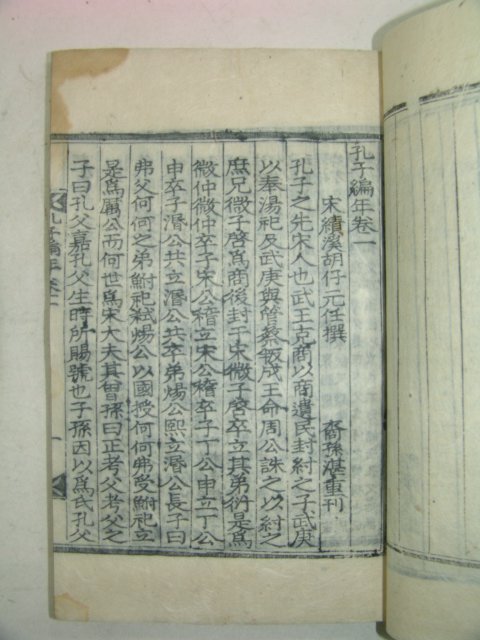 孔子編年卷一
宋績溪胡仔元任撰 裔孫湛重刊
孔子之先宋人也武王克商以商遺民封紂之子武庚
以奉湯祀及武庚與管蔡叛成王命周公誅之以紂之
庶兄微子啓爲商後封于宋微子啓卒立其弟衍是爲
微仲微仲卒子宋公稽立宋公稽卒子丁公申立丁公
申卒子湣公共立湣公共卒弟煬公熙立湣公長子曰
弗父何何之弟鮒祀弑煬公以國授何何弗受鮒祀立
是爲厲公而何世爲宋大夫其曾孫曰正考父考父之
子曰孔父嘉孔父生時所賜號也子孫因以爲氏孔父
孔子編年卷一
一